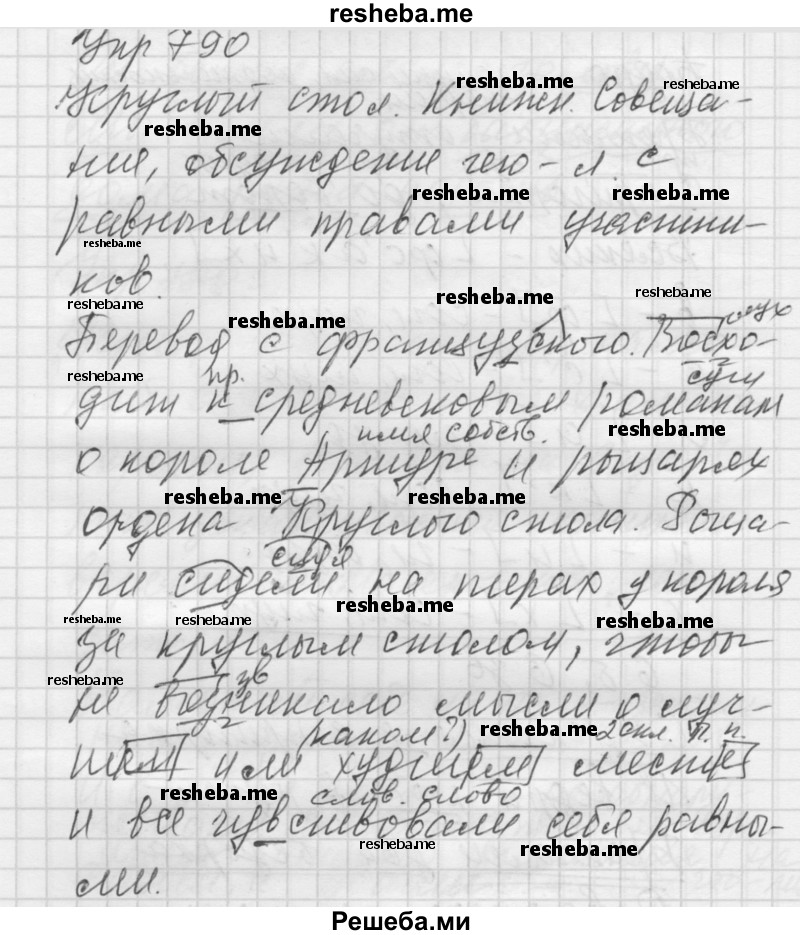 resheba.me
Упр 790
resheba.me resheba.me
Круглый стол. Книжн. Совеща-
resheba.me
ние, обсуждение чего-л. с
resheba.me resheba.me
равными правами участни-
resheba.me
ков.
resheba.me resheba.me resheba.me
resheba.me глух
Перевод с французского. Восхо-
resheba.me пр. сущ
дит к средневековым романам
имя собств. resheba.me
о короле Артуре и рыцарях
resheba.me resheba.me
ордена Круглого стола. Рыца-
сидя
ри сидели на пирах у короля
resheba.me resheba.me resheba.me resheba.me
за круглым столом, чтобы
resheba.me зв
не возникало мысли о луч-
(каком?) resheba.me 2 скл. П. п.
шем или худшем месте
resheba.me слов. слово
и все чувствовали себя равны-
resheba.me resheba.me
ми.
Решеба.ми